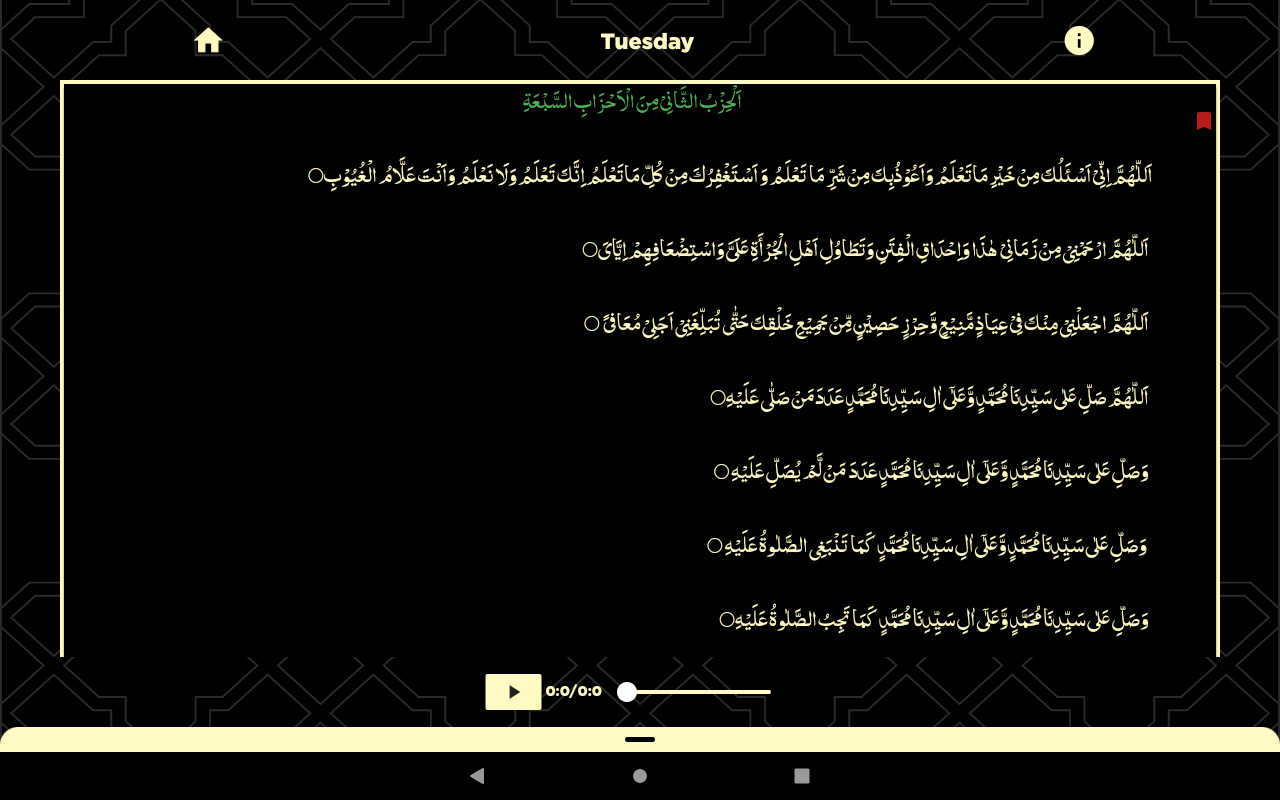 Tuesday
اَلْحِزْبُ الثَّانِیْ مِنَ الْاَحْزَابِ السَّبْعَةِ
اَللّٰهُمَّ اِنِّیْ اَسْئَلُكَ مِنْ خَیْرِ مَا تَعْلَمُ وَاَعُوْذُبِكَ مِنْ شَرِّ مَا تَعْلَمُ وَ اَسْتَغْفِرُكَ مِنْ كُلِّ مَا تَعْلَمُ اِنَّكَ تَعْلَمُ وَلَا نَعْلَمُ وَاَنْتَ عَلَّامُ الْغُیُوْبِ○
اَللّٰهُمَّ ارْحَمْنِیْ مِنْ زَمَانِیْ هٰذَا وَاِحْدَاقِ الْفِتَنِ وَتَطَاوُلِ اَهْلِ الْجُرْأَةِ عَلَیَّ وَاسْتِضْعَافِهِمْ اِیَّایَ○
اَللّٰهُمَّ اجْعَلْنِیْ مِنْكَ فِیْ عِیَاذٍ مَّنِیْعٍ وَّحِرْزٍ حَصِیْنٍ مِّنْ جَمِیْعِ خَلْقِكَ حَتّٰی تُبَلِّغَنِیْ اَجَلِیْ مُعَافیً ○
اَللّٰهُمَّ صَلِّ عَلٰی سَیِّدِنَا مُحَمَّدٍ وَّعَلٰٓی اٰلِ سَیِّدِنَا مُحَمَّدٍ عَدَدَ مَنْ صَلّٰی عَلَیْهِ○
وَصَلِّ عَلٰی سَیِّدِنَا مُحَمَّدٍ وَّعَلٰٓی اٰلِ سَیِّدِنَا مُحَمَّدٍ عَدَدَ مَنْ لَّمْ یُصَلِّ عَلَیْهِ ○
وَصَلِّ عَلٰی سَیِّدِنَا مُحَمَّدٍ وَّعَلٰٓی اٰلِ سَیِّدِنَا مُحَمَّدٍ كَمَا تَنْبَغِی الصَّلٰوةُ عَلَیْهِ ○
وَصَلِّ عَلٰی سَیِّدِنَا مُحَمَّدٍ وَّعَلٰٓی اٰلِ سَیِّدِنَا مُحَمَّدٍ كَمَا تَجِبُ الصَّلٰوةُ عَلَیْهِ○
0:0/0:0